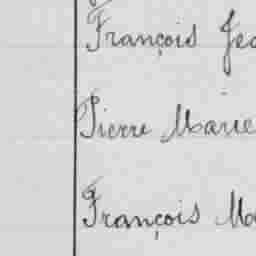 François Jea
Pierre Marie
François Ma